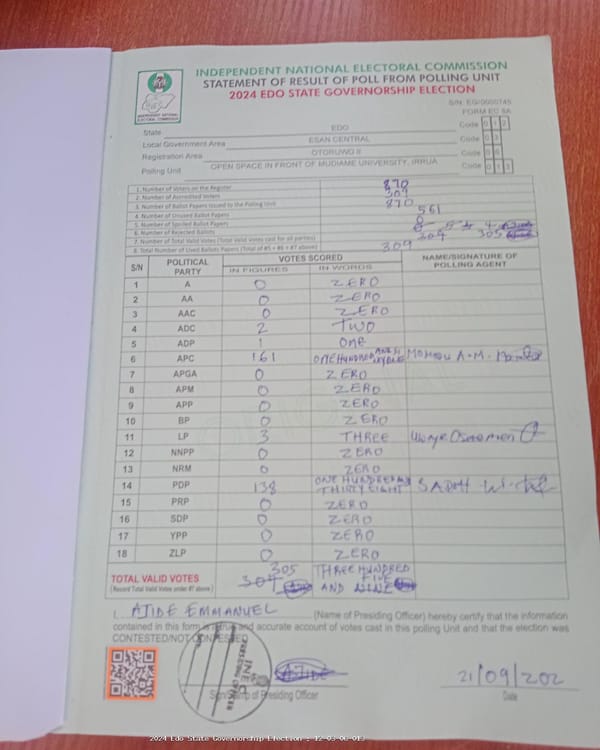 INDEPENDENT NATIONAL ELECTORAL COMMISSION
STATEMENT OF RESULT OF POLL FROM POLLING UNIT
2024 EDO STATE GOVERNORSHIP ELECTION
INDEPENDENT NATIONAL ELECTORAL COMMISSION
S/N: EG/0000745
FORM EC 8A
State EDO Code 0 1 2
Local Government Area ESAN CENTRAL Code 0 3
Registration Area OTORUWO II Code
Polling Unit OPEN SPACE IN FRONT OF MUDIAME UNIVERSITY, IRRUA Code 0 1 3
1. Number of Voters on the Register 870
2. Number of Accredited Voters 309
3. Number of Ballot Papers Issued to the Polling Unit 870
4. Number of Unused Ballot Papers 561
5. Number of Spoiled Ballot Papers 0
6. Number of Rejected Ballots 4
7. Number of Total Valid Votes (Total Valid Votes cast for all parties) 304 305
8. Total Number of Used Ballots Papers (Total of #5 + #6 + #7 above) 309
S/N POLITICAL PARTY VOTES SCORED NAME/SIGNATURE OF POLLING AGENT
IN FIGURES IN WORDS
1 A 0 ZERO
2 AA 0 ZERO
3 AAC 0 ZERO
4 ADC 2 TWO
5 ADP 1 ONE
6 APC 161 ONE HUNDRED AND SIXTY ONE MOMODU A.M.
7 APGA 0 ZERO
8 APM 0 ZERO
9 APP 0 ZERO
10 BP 0 ZERO
11 LP 3 THREE
12 NNPP 0 ZERO
13 NRM 0 ZERO
14 PDP 138 ONE HUNDRED AND THIRTY EIGHT
15 PRP 0 ZERO
16 SDP 0 ZERO
17 YPP 0 ZERO
18 ZLP 0 ZERO
TOTAL VALID VOTES 305 THREE HUNDRED
(Record Total Valid Votes under #7 above) 304 AND FIVE NINE
I, AJIDE EMMANUEL (Name of Presiding Officer) hereby certify that the information
contained in this form is true and accurate account of votes cast in this polling Unit and that the election was
CONTESTED/NOT CONTESTED
INEC
PRESIDING OFFICER
AJIDE
21/09/202
Sign/Stamp of Presiding Officer Date
2024 Edo State Governorship Election : 12-03-06-013